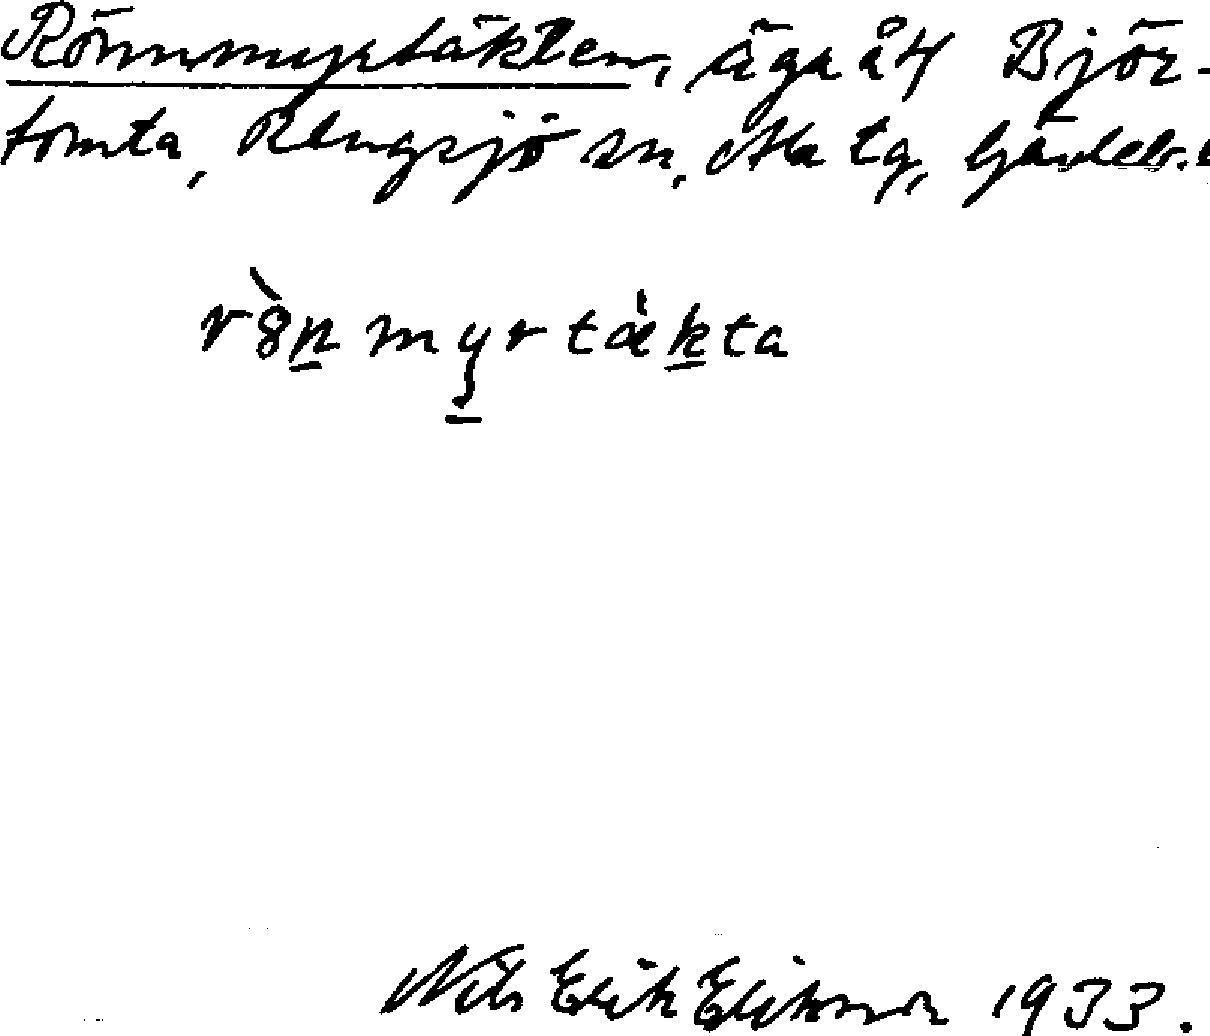 Rönnmyrtäkten, äga å 4 Björ-
tomta, Rengsjö sn, Ala tg, Gävleb. l
rò̈n myrtäkta
Nils Erik Erikson 1933.